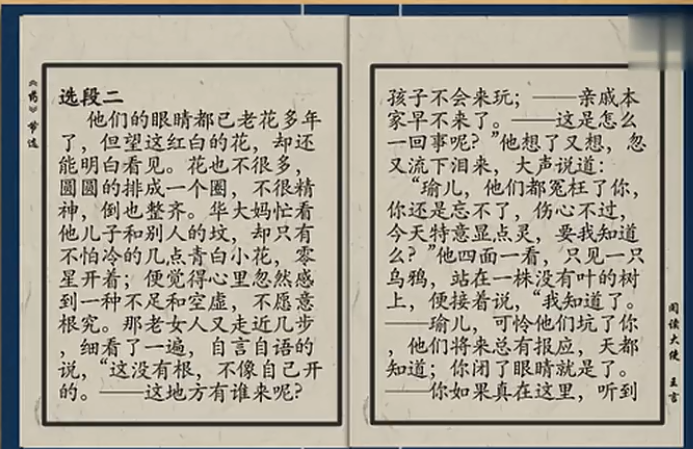 《药》节选
选段二
他们的眼睛都已老花多年
了，但望这红白的花，却还
能明白看见。花也不很多，
圆圆的排成一个圈，不很精
神，倒也整齐。华大妈忙看
他儿子和别人的坟，却只有
不怕冷的几点青白小花，零
星开着；便觉得心里忽然感
到一种不足和空虚，不愿意
根究。那老女人又走近几步
，细看了一遍，自言自语的
说，“这没有根，不像自己开
的。——这地方有谁来呢？
孩子不会来玩；——亲戚本
家早不来了。——这是怎么
一回事呢？”他想了又想，忽
又流下泪来，大声说道：
“瑜儿，他们都冤枉了你，
你还是忘不了，伤心不过，
今天特意显点灵，要我知道
么？”他四面一看，只见一只
乌鸦，站在一株没有叶的树
上，便接着说，“我知道了。
——瑜儿，可怜他们坑了你
，他们将来总有报应，天都
知道；你闭了眼睛就是了。
——你如果真在这里，听到
阅读大使 王言